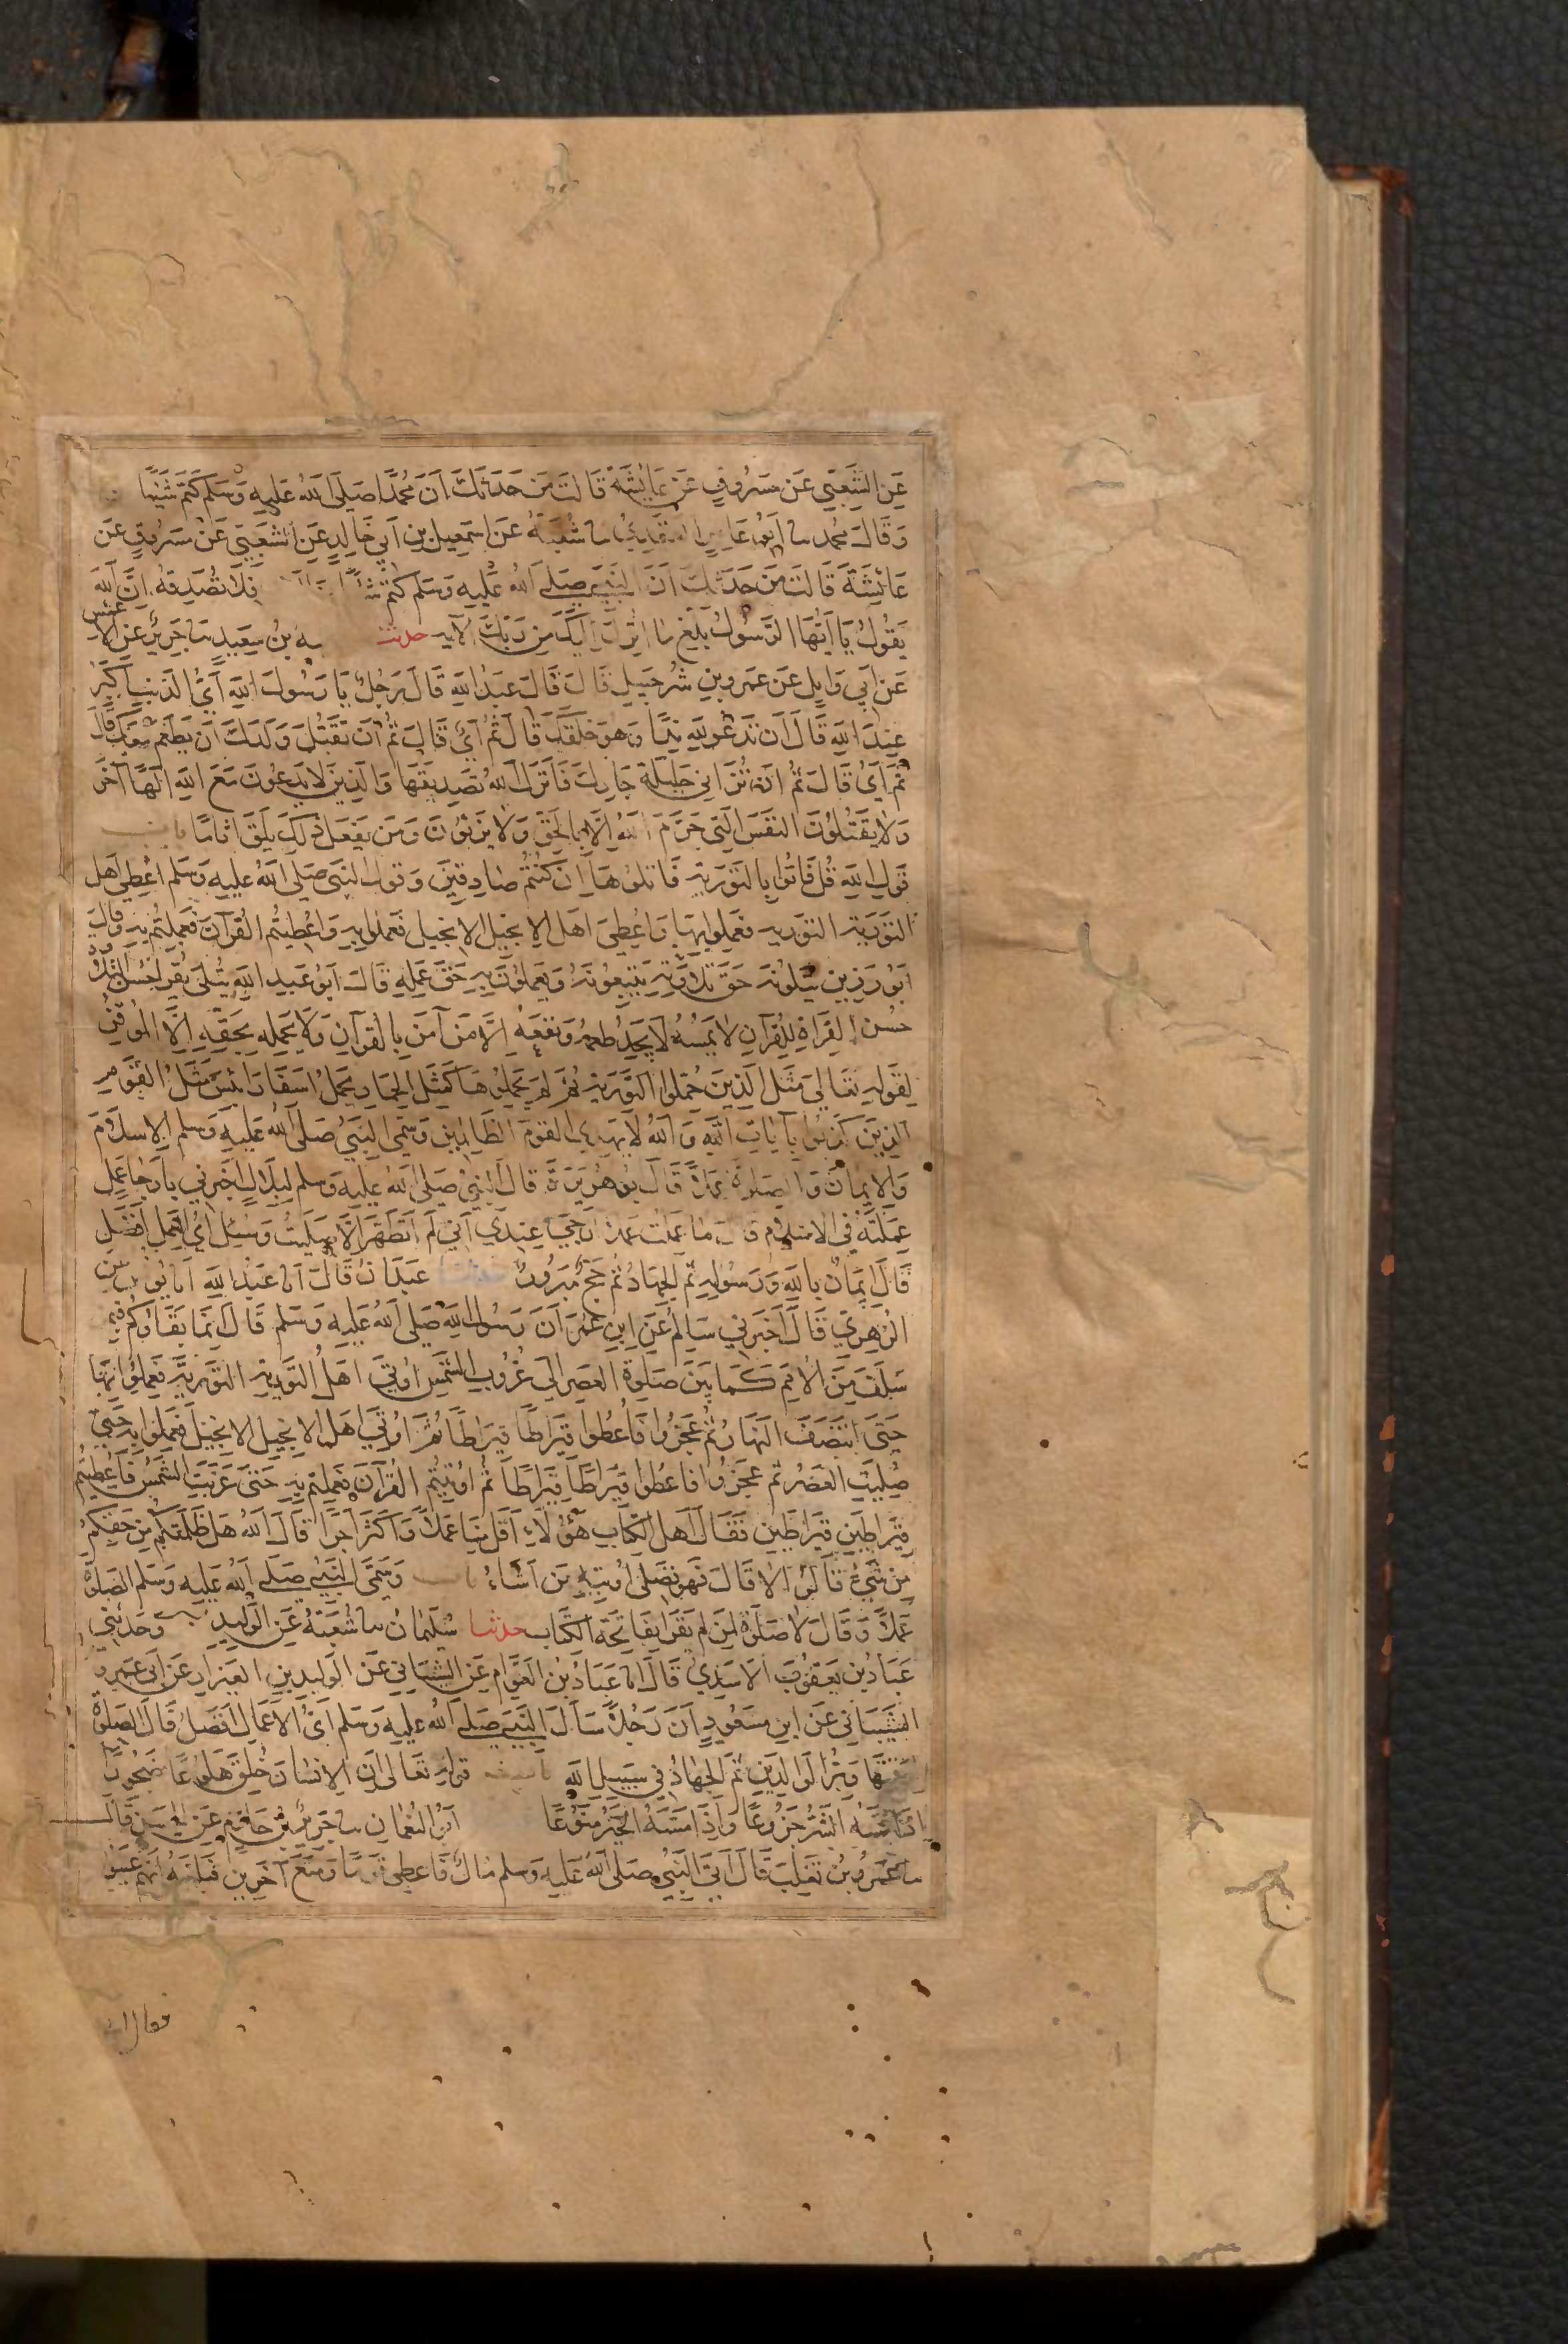 عَنِ الشَّعْبِيِّ عَن مَسْرُوقٍ عَنْ عَائِشَةَ قَالَت مَن حَدَثَكَ اَنَّ مُحَمَّدًا صَلَى اللهُ عَليهِ وَسَلم كَتَمَ شَيْئًا
وَقَالَ محمد سا اَبُو عَامِرٍ العَقَدِيُّ سا شُعْبَةُ عَن اسمَعِيل بنِ اَبي خَالِدٍ عَنِ الشَعْبِيّ عَنْ مَسرُوقٍ عَن
عَائِشَةَ قَالَتْ مَن حَدَثَكَ اَنَّ النَّبيَ صَلى اللهُ عَليهِ وَسَلم كَتَم فَلَا تُصَدِقهُ اِنَّ اللهَ
يَقُولُ يَا اَيُّهَا الرَّسُولُ بَلِّغْ مَا اُنزِلَ اِلَيكَ مِن رَبِّكَ الآيه حدثنا بن سَعِيدٍ سا جَرِيرٌ عَنِ الاَعمَش
عَن اَبي وَايِلٍ عَن عَمرو بنِ شُرَحبِيلَ قَالَ قَالَ عَبدُ اللهِ قَالَ رَجُلٌ يَا رَسُولَ اللهِ اَيُّ الذَنبِ اَكبَرُ
عِندَ اللهِ قَالَ اَن تَدعُو للهِ نِدًّا وَهوَ خَلَقَكَ قَالَ ثُمَّ اَيٌّ قَالَ ثُمَّ اَن تَقتُلَ وَلَدَكَ اَن يَطعَمَ مَعَكَ قَالَ
ثُمَّ اَيٌّ قَالَ ثُمَّ اَن تُزَانِي حَلِيلَةَ جَارِكَ فَاَنزَلَ اللهُ تَصدِيقَهَا وَالَّذِينَ لَا يَدعُونَ مَعَ اللهِ اِلٰهًا آخَرَ
وَلَا يَقتُلُونَ النَفسَ الَّتِي حَرَّمَ اللهُ اِلَّا بِالحَقِّ وَلَا يَزنُونَ وَمَن يَفعَل ذٰلِكَ يَلقَ اَثَامًا باب
قَولِ اللهِ قُل فَاتُوا بِالتَورٰيةِ فَاتلُوهَا اِن كُنتُم صَادِقِينَ وَقولِ النَبيِّ صَلى اللهُ عَليهِ وَسَلم اُعطِيَ اَهل
التَورٰيةِ التَورٰيةَ فَعَمِلُوا بِهَا وَاُعطِيَ اَهل الاِنجِيلِ الاِنجِيلَ فَعَمِلُوا بِهِ وَاُعطِيتُم القُرآنَ فَعَمِلتُم بِهِ وَقَالَ
اَبُو رَزِينٍ يَتلُونَهُ حَقَّ تِلَاوَتِهِ يَتَّبِعُونَهُ وَيَعمَلُونَ بِهِ حَقَّ عَمَلِهِ قَالَ اَبُو عَبدِ اللهِ يُتلَى يُقرَأ حَسَنُ التِلَاوَةِ
حسن القِرَاةِ لِلقُرآنِ لَا يَمَسُّهُ لَا يَجِدُ طَعمَهُ وَنَفعَهُ اِلَّا مَن آمَنَ بِالقُرآنِ وَلَا يَحمِلهُ بِحَقِّهِ اِلَّا المُوقِنُ
لِقَولِهِ تَعَالَى مَثَلُ الَّذِينَ حُمِّلُوا التَورٰيةَ ثُمَّ لَم يَحمِلُوهَا كَمَثَلِ الحِمَارِ يَحمِلُ اَسفَارًا بِئسَ مَثَلُ القَومِ
الَّذِينَ كَذَّبُوا بِآيَاتِ اللهِ وَاللهُ لَا يَهدِي القَومَ الظَالِمِينَ وَسَمَّى النَبيُّ صَلى اللهُ عَليهِ وَسَلم الاِسلَامَ
وَالاِيمَانَ وَالصَلٰوةَ عَمَلًا قَالَ ابُو هُرَيرَةَ قَالَ النَبيُّ صَلى اللهُ عَليهِ وَسَلم لِبِلَالٍ اَخبِرنِي بِاَرجَا عَمَلٍ
عَمِلتَهُ فِي الاِسلَامِ قَالَ مَا عَمِلتُ عَمَلًا اَرجَى عِندِي اَنِّي لَم اَتَطَهَّر اِلَّا صَلَّيتُ وَسُئِلَ اَيُّ العَمَلِ اَفضَلُ
قَالَ اِيمَانٌ بِاللهِ وَرَسُولِهِ ثُمَّ الجِهَادُ ثُمَّ حَجٌّ مَبرُورٌ حدثنا عَبدَانُ قَالَ انا عَبدُ اللهِ انا يُونس عن
الزُهرِيِّ قَالَ اَخبَرَنِي سَالِمٌ عَنِ ابنِ عُمَرَ اَنَّ رَسُولَ اللهِ صَلى اللهُ عَليهِ وَسَلم قَالَ اِنَّمَا بَقَاؤكُم فِيمَا
سَلَفَ مِنَ الاُمَمِ كَمَا بَينَ صَلٰوةِ العَصرِ اِلَى غُرُوبِ الشَمسِ اُوتِيَ اَهلُ التَورٰيةِ التَورٰيةَ فَعَمِلُوا بِهَا
حَتَّى انتَصَفَ النَهَارُ ثُمَّ عَجَزُوا فَاُعطُوا قِيرَاطًا قِيرَاطًا ثُمَّ اُوتِيَ اَهلُ الاِنجِيلِ الاِنجِيلَ فَعَمِلُوا بِهِ حَتَّى
صُلِّيَتِ العَصرُ ثُمَّ عَجَزُوا فَاُعطُوا قِيرَاطًا قِيرَاطًا ثُمَّ اُوتِيتُم القُرآنَ فَعَمِلتُم بِهِ حَتَّى غَرَبَتِ الشَمسُ فَاُعطِيتُم
قِيرَاطَينِ قِيرَاطَينِ فَقَالَ اَهلُ الكِتَابِ هٰؤُلَاءِ اَقَلُّ مِنَّا عَمَلًا وَاَكثَرُ اَجرًا قَالَ اللهُ هَل ظَلَمتُكُم مِن حَقِّكُم
مِن شَيءٍ قَالُوا لَا قَالَ فَهوَ فَضلِي اُوتِيهِ مَن اَشَاءُ باب وَسَمَّى النَبيُّ صَلى اللهُ عَليهِ وَسَلم الصَلٰوةَ
عَمَلًا وَقَالَ لَا صَلٰوةَ لِمَن لَم يَقرَأ بِفَاتِحَةِ الكِتَابِ حدثنا سُلَيمَانُ سا شُعبَةُ عَنِ الوَلِيدِ وحَدَثَنِي
عَبَادُ بن يَعقُوبَ الاَسَدِيُّ قَالَ انا عَبَادُ بنُ العَوَّامِ عَنِ الشَيبَانِي عَنِ الوَلِيدِ بنِ العَيزَارِ عَن اَبي عَمرٍو
الشَيبَانِي عَنِ ابنِ مَسعُودٍ اَنَّ رَجُلًا سَاَلَ النَبيَّ صَلى اللهُ عَليهِ وَسَلم اَيُّ الاَعمَالِ اَفضَلُ قَالَ الصَلٰوةُ
لِوَقتِهَا وَبِرُّ الوَالِدَينِ ثُمَّ الجِهَادُ فِي سَبِيلِ اللهِ باب قولِهِ تَعَالَى اِنَّ الاِنسَانَ خُلِقَ هَلُوعًا ضَجُورًا
اِذَا مَسَّهُ الشَرُّ جَزُوعًا وَاِذَا مَسَّهُ الخَيرُ مَنُوعًا اَبُو النُعمَانِ سا جَرِيرُ بنُ حَازِمٍ عَنِ الحَسَنِ قَالَ
سا عَمرُو بنُ تَغلِبَ قَالَ اَتَى النَبيَّ صَلى اللهُ عَليهِ وَسَلم مَالٌ فَاَعطَى قَومًا وَمَنَعَ آخَرِينَ فَبَلَغَهُ اَنَّهُم عَتَبُوا
فقال انى